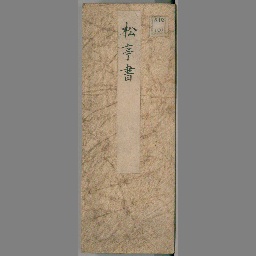 松亭書